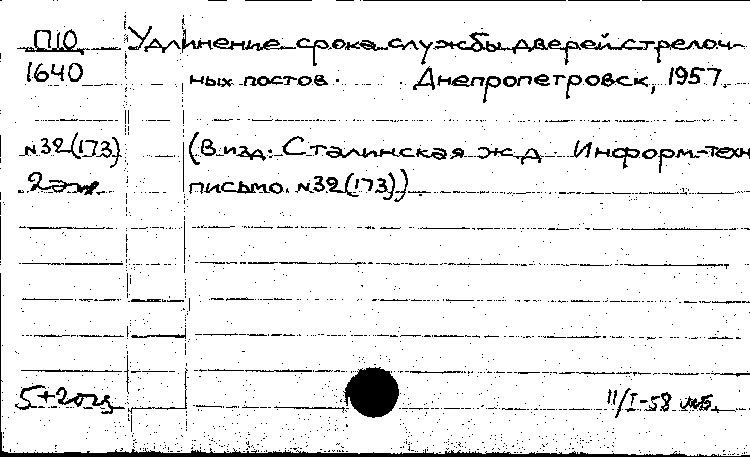 П10 Удлинение срока службы дверей стрелоч-
1640 ных постов. Днепропетровск, 1957.
N32(173) (В изд: Сталинская ж.д. Информ-техн
2 экз. письмо. N32(173)).
11/I-58